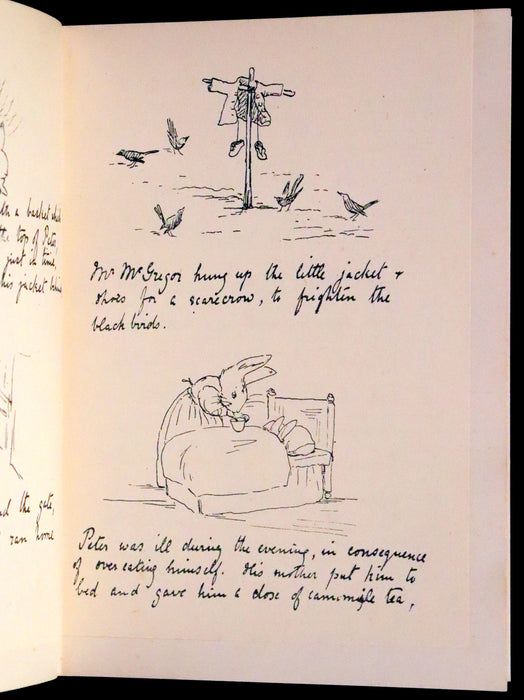 the top of Peter,
just in time,
his jacket behind
Mr McGregor hung up the little jacket +
shoes for a scarecrow, to frighten the
black birds.
the gate,
ran home
Peter was ill during the evening, in consequence
of over eating himself. His mother put him to
bed and gave him a dose of cammomile tea,